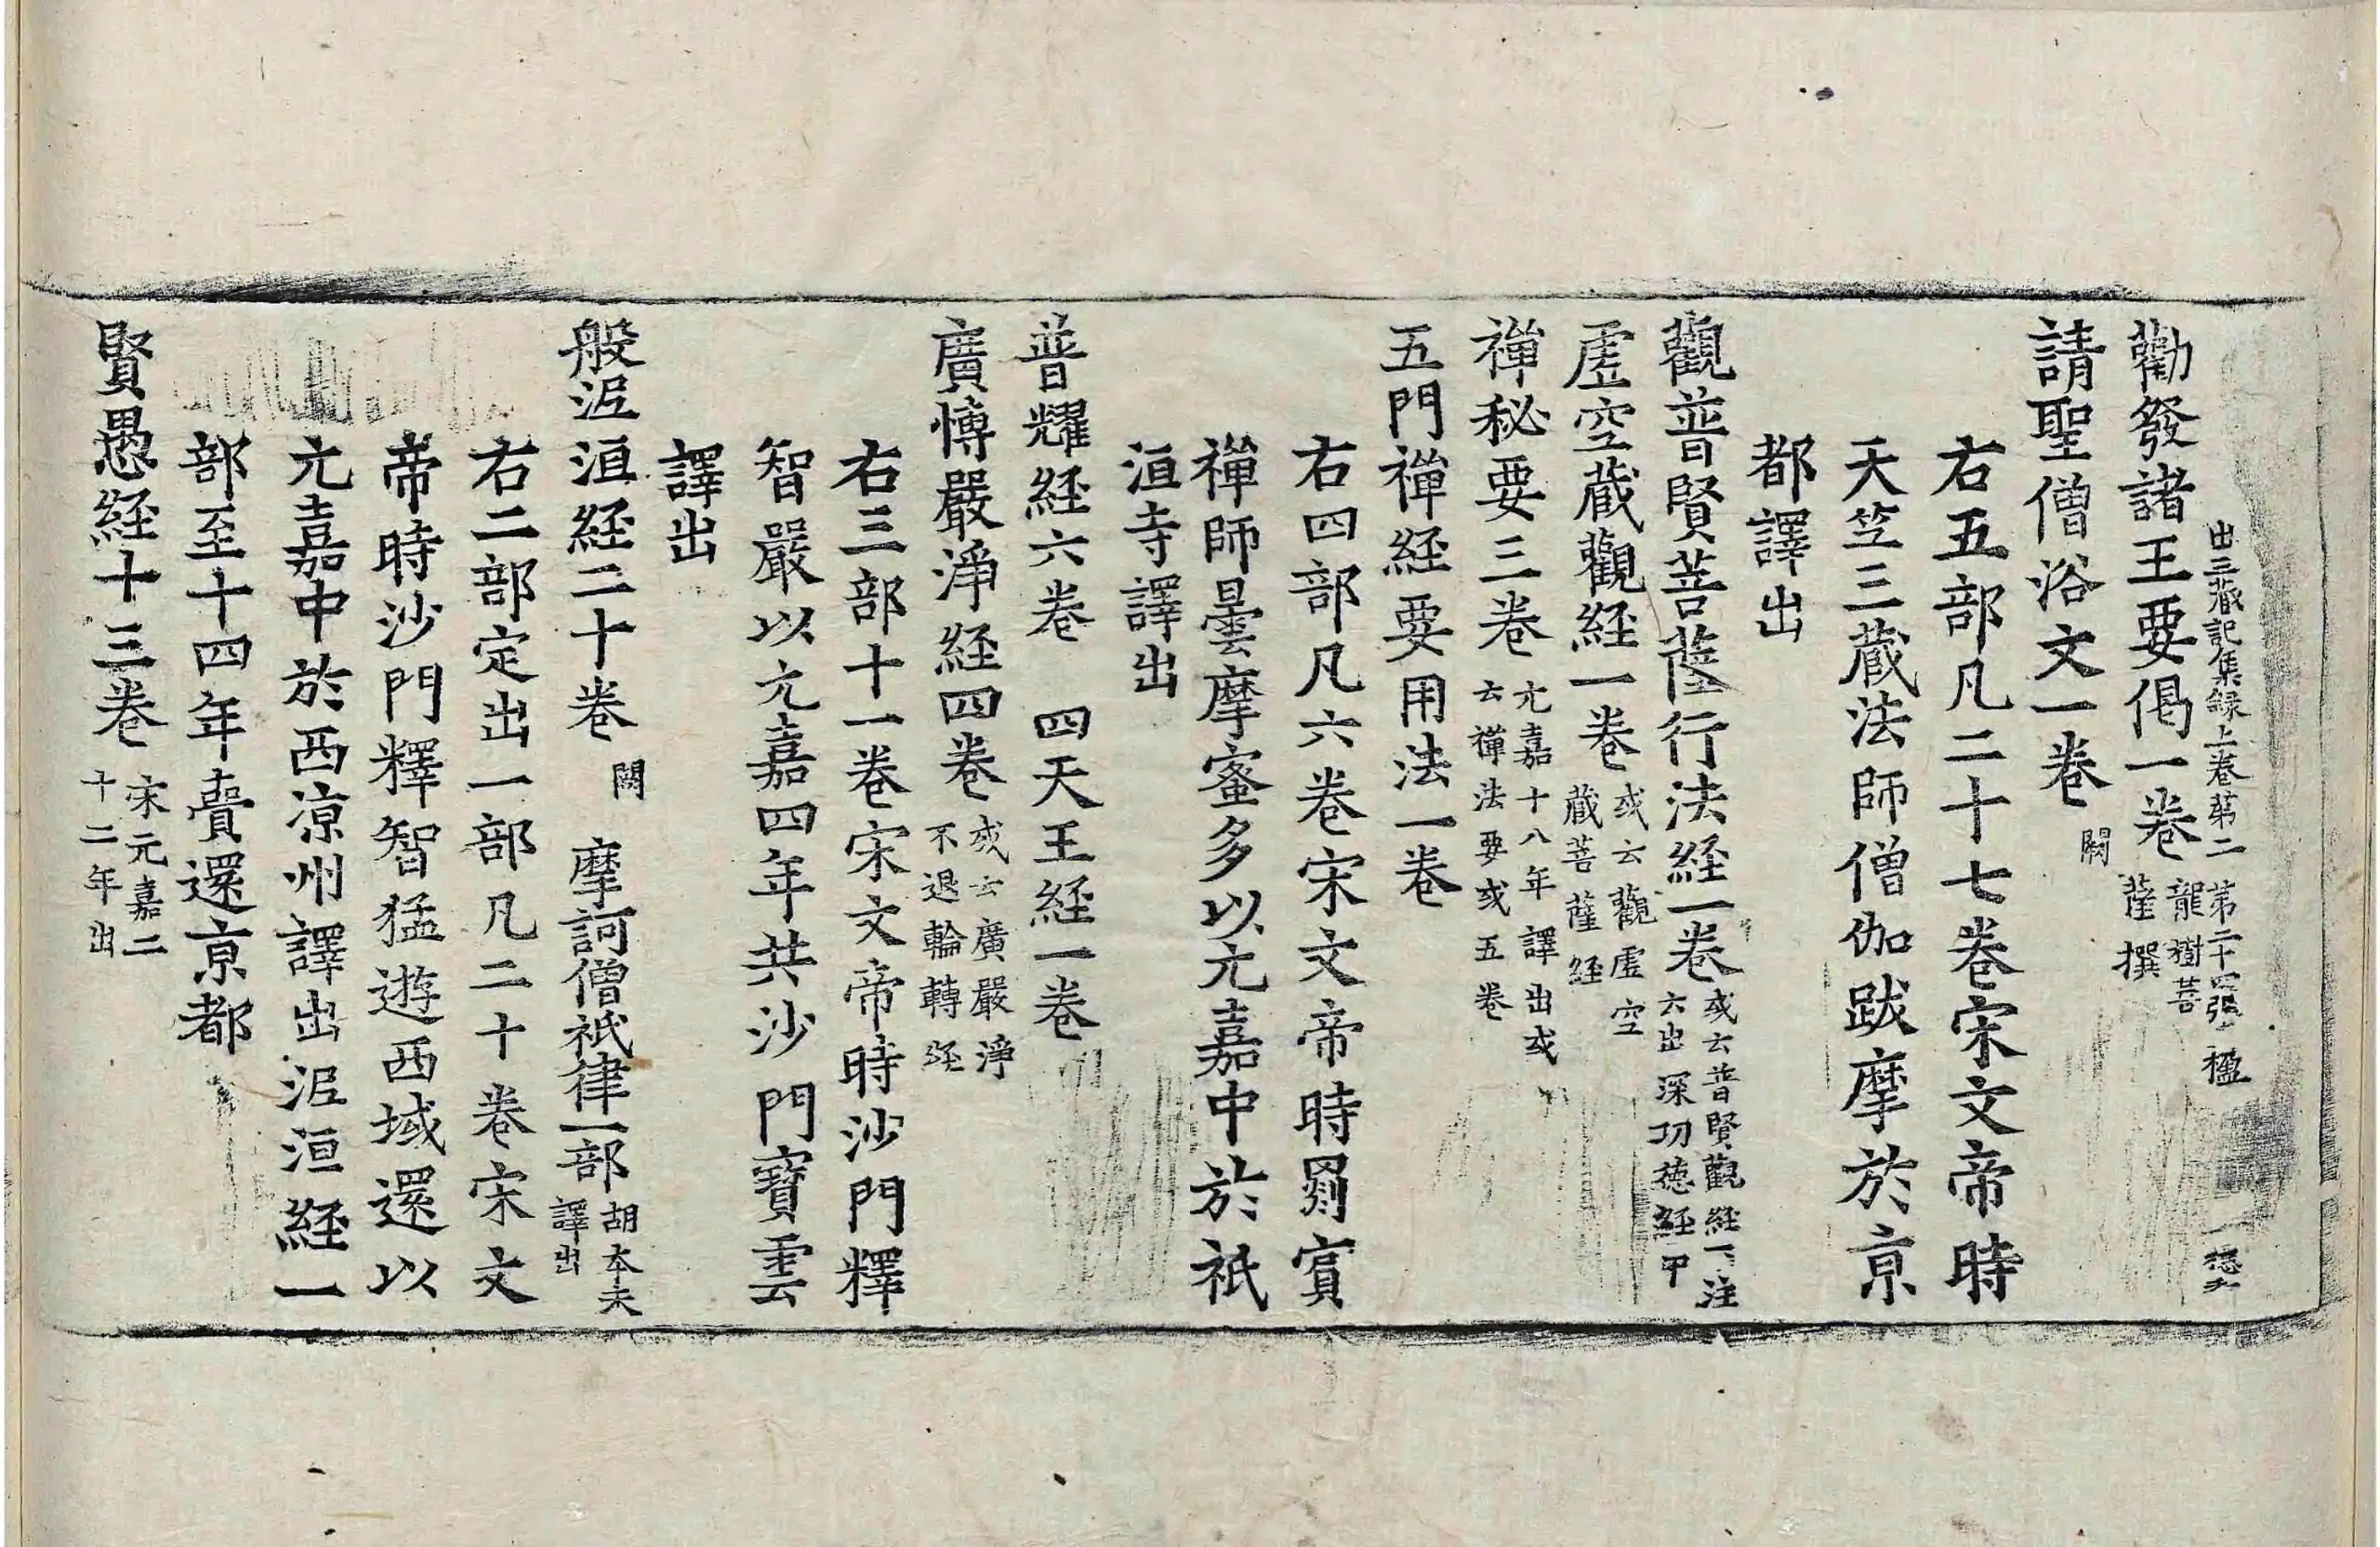 出三蔵記集録上卷第二 第二十四張 楹
勸發諸王要偈一卷 龍樹菩薩撰
請聖僧浴文一卷 闕
右五部凡二十七卷宋文帝時
天竺三蔵法師僧伽跋摩於京
都譯出
觀普賢菩薩行法経一卷 或云普賢觀経下注云出深功徳経中
虚空蔵觀経一卷 或云觀虚空蔵菩薩経
禅秘要三卷 元嘉十八年譯出或云禅法要或五卷
五門禅経要用法一卷
右四部凡六卷宋文帝時罽賓
禅師曇摩蜜多以元嘉中於祇
洹寺譯出
普耀経六卷 四天王経一卷
廣博嚴淨経四卷 或云廣嚴淨不退輪轉経
右三部十一卷宋文帝時沙門釋
智嚴以元嘉四年共沙門寶雲
譯出
般泥洹経二十卷 闕 摩訶僧祇律一部 胡本未譯出
右二部定出一部凡二十卷宋文
帝時沙門釋智猛遊西域還以
元嘉中於西涼州譯出泥洹経一
部至十四年賷還京都
賢愚経十三卷 宋元嘉二十二年出